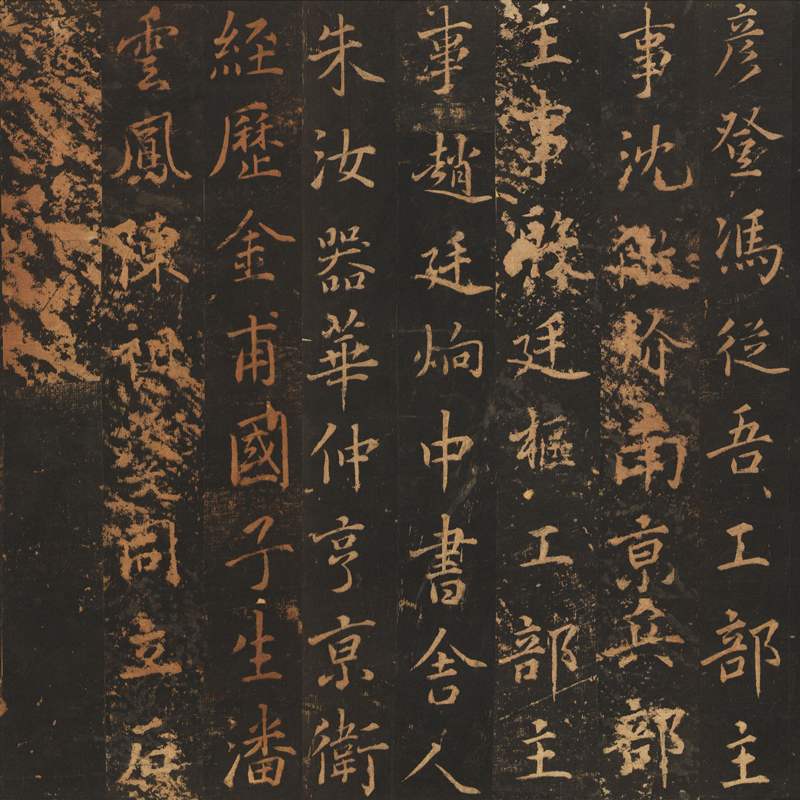 彦登馮從吾工部主
事沈㴶玠南京兵部
主事殷廷樞工部主
事趙廷炯中書舍人
朱汝器華仲亨京衛
經歷金甫國子生潘
雲鳳陳祖苾同立石